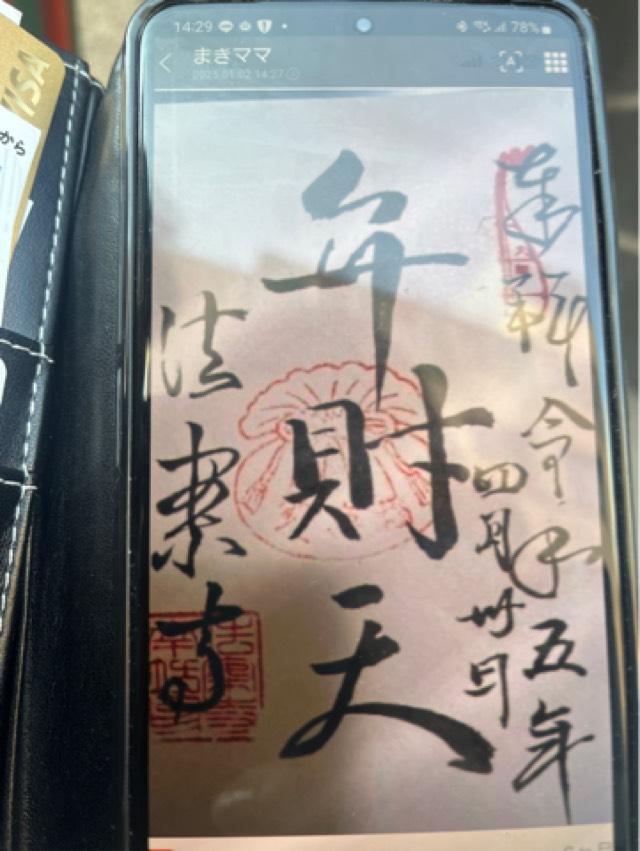 14:29 78%
まぎママ
2025.01.02 14:27
VISA
から
奉拝
令和五年
四月卅日
弁財天
法案寺